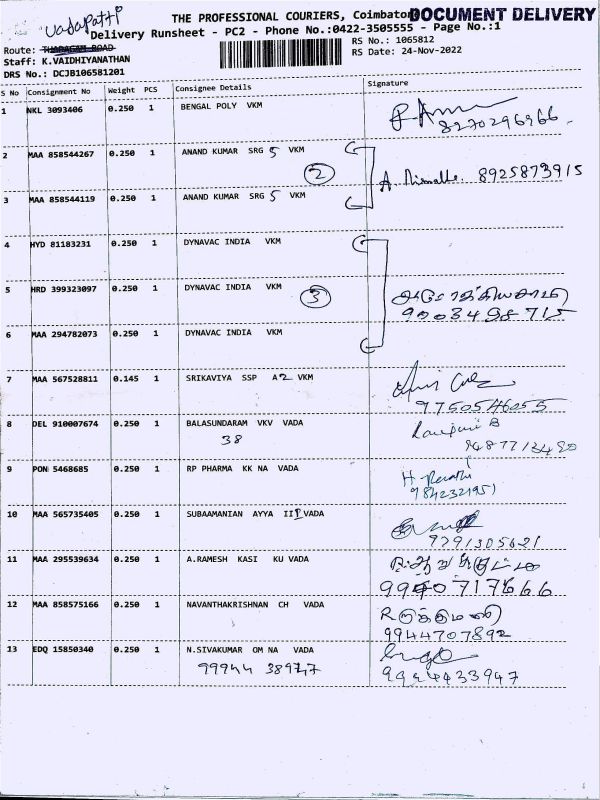 THE PROFESSIONAL COURIERS, Coimbato
DOCUMENT DELIVERY
Vadapatti
Delivery Runsheet - PC2 - Phone No.:0422-3505555 - Page No.:1
Route: THADAGAM ROAD
RS No.: 1065812
Staff: K.VAIDHIYANATHAN
RS Date: 24-Nov-2022
DRS No.: DCJB106581201
S No Consignment No Weight PCS Consignee Details Signature
1 NKL 3093406 0.250 1 BENGAL POLY VKM
8270296966.
2 MAA 858544267 0.250 1 ANAND KUMAR SRG 5 VKM
2 A. Nirmalla. 8925873915
3 MAA 858544119 0.250 1 ANAND KUMAR SRG 5 VKM
4 HYD 81183231 0.250 1 DYNAVAC INDIA VKM
5 HRD 399323097 0.250 1 DYNAVAC INDIA VKM
3 9003498715
6 MAA 294782073 0.250 1 DYNAVAC INDIA VKM
7 MAA 567528811 0.145 1 SRIKAVIYA SSP A2 VKM
9750546055
8 DEL 910007674 0.250 1 BALASUNDARAM VKV VADA
38
9487713490
9 PON 5468685 0.250 1 RP PHARMA KK NA VADA
9842321951
10 MAA 565735405 0.250 1 SUBAAMANIAN AYYA III VADA
9791305621
11 MAA 295539634 0.250 1 A.RAMESH KASI KU VADA
9940717666
12 MAA 858575166 0.250 1 NAVANTHAKRISHNAN CH VADA
R ருக்மணி
9944707892
13 EDQ 15850340 0.250 1 N.SIVAKUMAR OM NA VADA
99944 38977
9944433947